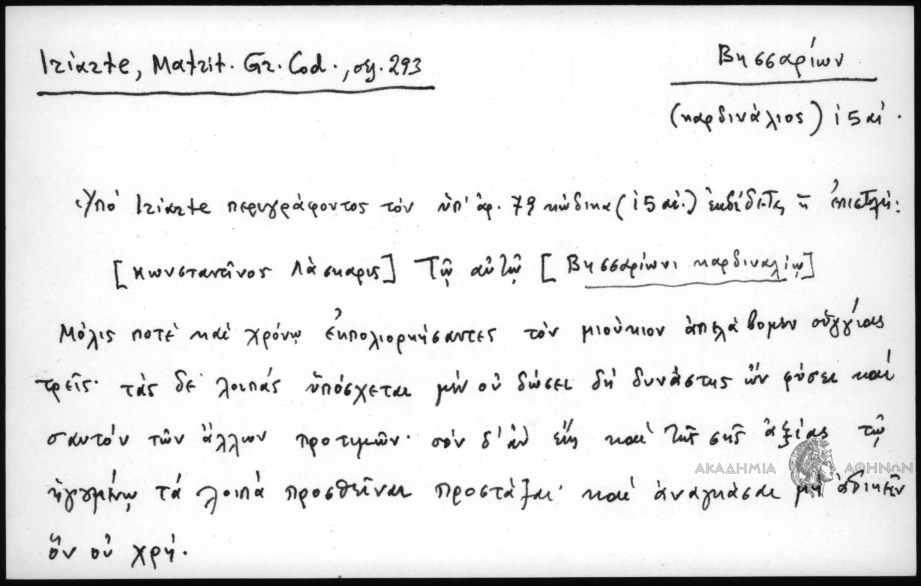 Iriarte, Matrit. Gr. Cod., σελ. 293
Βησσαρίων
(καρδινάλιος) ι5 αἰ.
Ὑπό Iriarte περιγράφοντος τόν ὑπ' ἀρ. 79 κώδικα (ι5 αἰ.) ἐκδίδεται ἡ ἐπιστολή:
[Κωνσταντῖνος Λάσκαρις] Τῷ αὐτῷ [Βησσαρίωνι καρδιναλίῳ]
Μόλις ποτέ καί χρόνῳ ἐκπολιορκήσαντες τόν μιούκιον ἀπελάβομεν οὐγγίας
τρεῖς· τάς δέ λοιπάς ὑπόσχεται μήν οὐ δώσει δή δυνάστης ὤν φύσει καί
σαυτόν τῶν ἄλλων προτιμῶν· σόν δ' ἄν εἴη καί τῆς σῆς ἀξίας τῷ
ἡγουμένῳ τά λοιπά προσθεῖναι προστάξαι· καί ἀναγκάσαι μή ἀδικεῖν
ὅν οὐ χρή.
ΑΚΑΔΗΜΙΑ ΑΘΗΝΩΝ